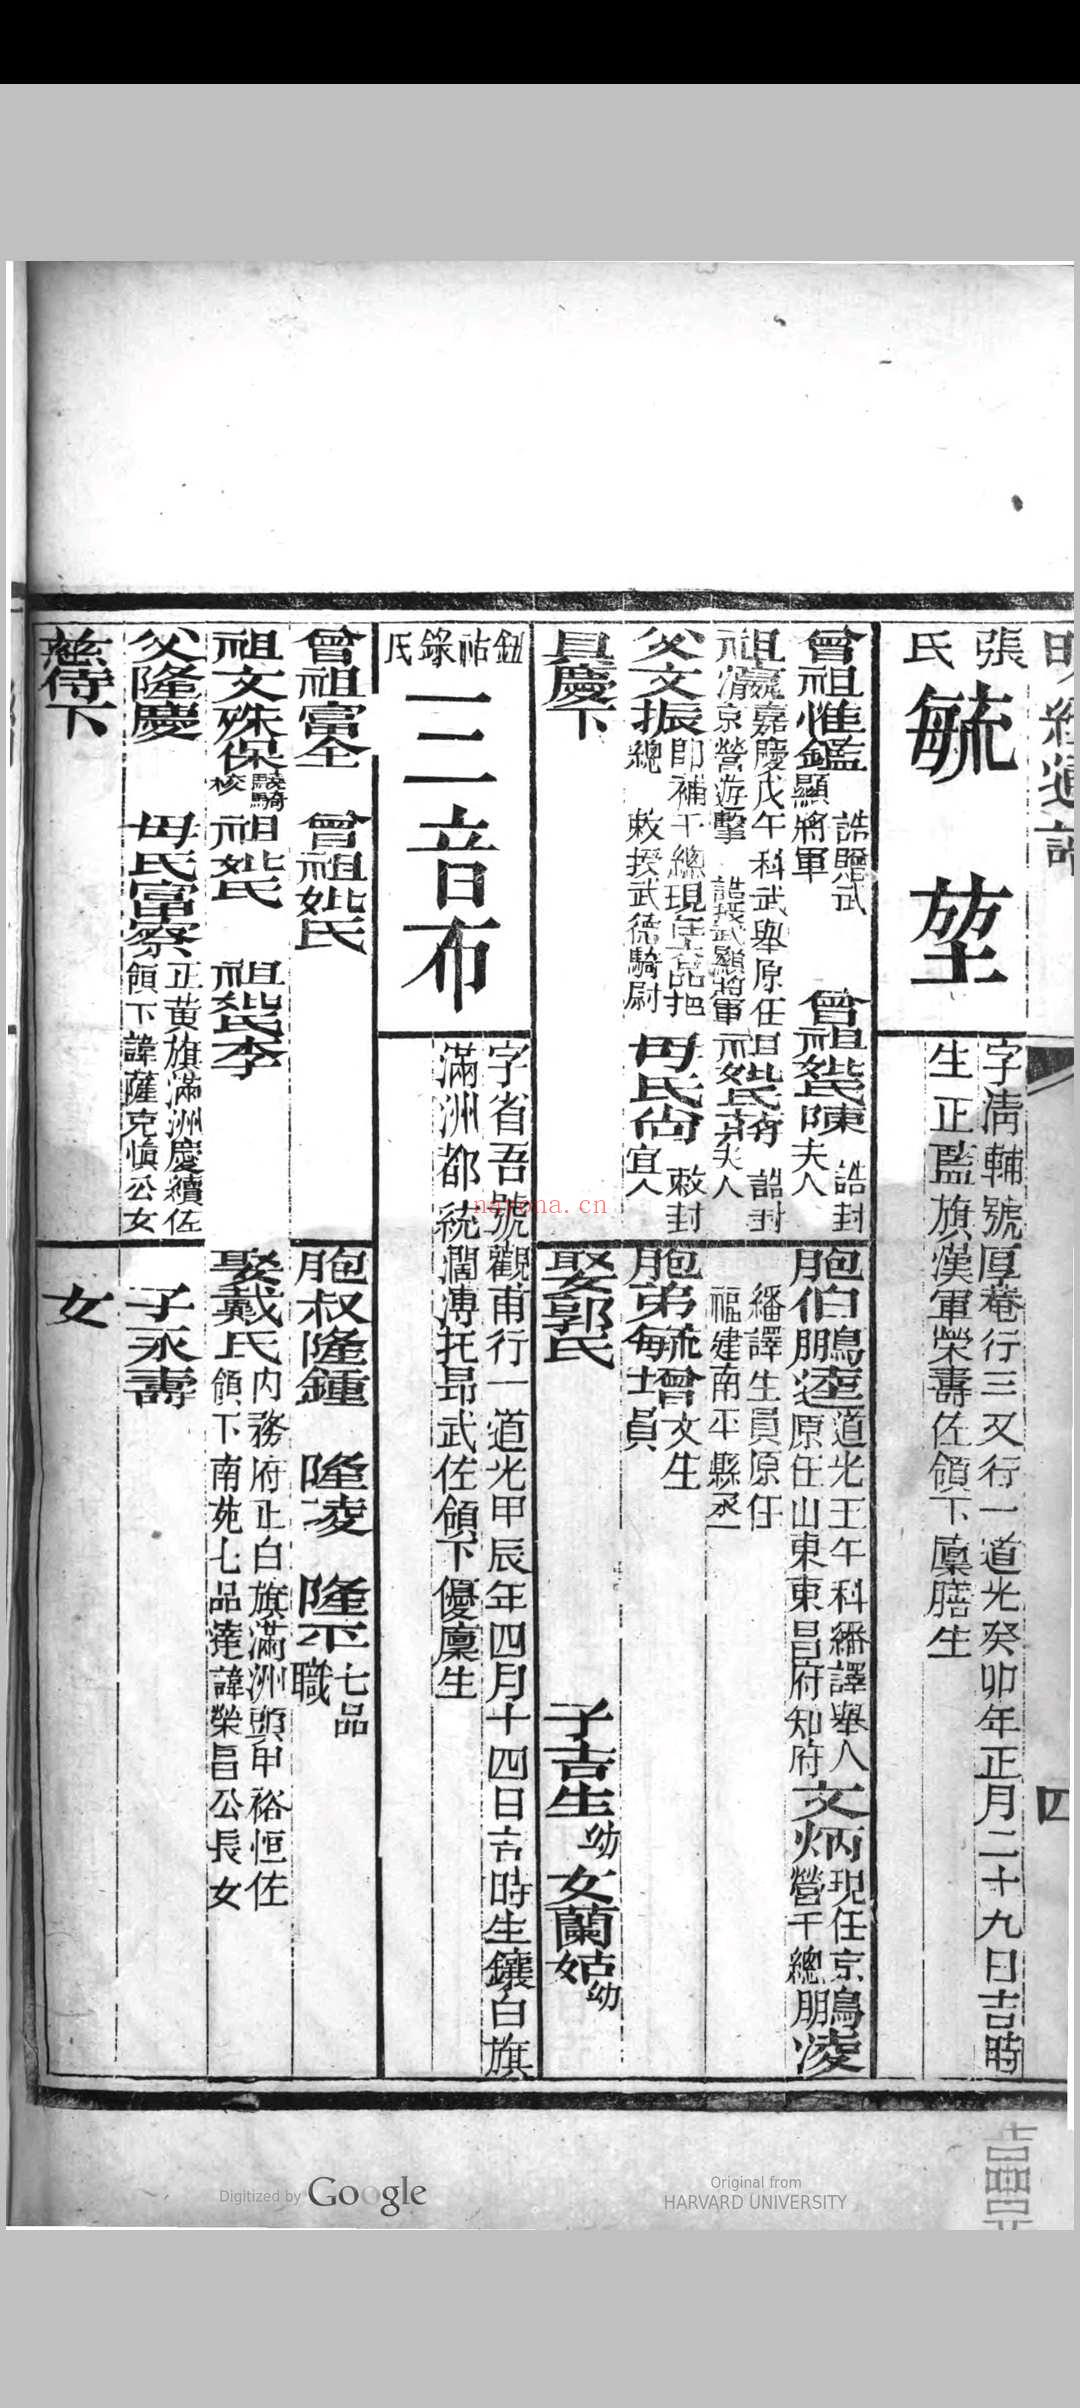 明經通譜
四
張氏
毓堃
字清輔號厚菴行三又行一道光癸卯年正月二十九日吉時
生正藍旗漢軍榮壽佐領下廩膳生
曾祖惟鑑誥贈武顯將軍
曾祖妣氏陳誥封夫人
胞伯鵬逵道光壬午科繙譯舉人原任山東東昌府知府
文炳現任京營千總
鵬凌繙譯生員原任福建南平縣丞
祖嘉慶戊午科武舉原任京營遊擊誥授武顯將軍
祖妣氏蔣誥封夫人
父文振即補千總現任把總敕授武德騎尉
母氏尚敕封宜人
胞弟毓增文生員
具慶下
娶郭氏
子吉生幼
女蘭姑幼
鈕祜祿氏
三音布
字省吾號觀甫行一道光甲辰年四月十四日吉時生鑲白旗
滿洲都統濶溥托昂武佐領下優廩生
曾祖富全
曾祖妣氏
胞叔隆鍾
隆凌
隆
七品職
祖文殊保驍騎校
祖妣氏
祖妣氏李
娶戴氏內務府正白旗滿洲頭甲裕恒佐領下南苑七品達諱榮昌公長女
父隆慶
母氏富察正黃旗滿洲慶續佐領下諱薩克慎公女
子永壽
慈侍下
女
nayona.cn
Digitized by Google
Original from
HARVARD UNIVERSITY